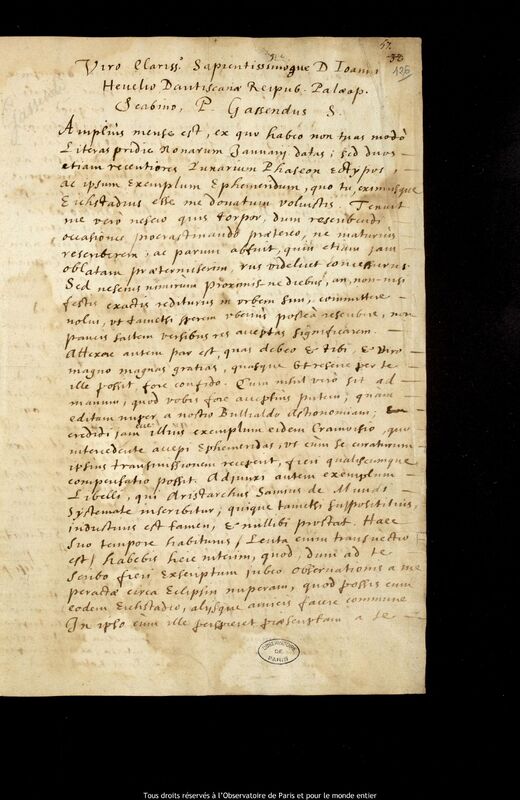 57.
38
126
Gassendi
Viro Clariss.º Sapientissimoque D. Ioanni
Hevelio Dantiscanæ Reipub. Palæop.
Scabino, P. Gassendus S.
Amplius mense est, ex quo habeo non tuas modò
literas pridie Nonarum Januarij datas; sed duos
etiam recentiores Lunarium Phaseon Ectypos,
ac ipsum exemplum Ephemeridum, quo tu, eximiusque
Eichstadius esse me donatum voluistis. Tenuit
me verò nescio quis torpor, dum rescribendi
occasiones procrastinando prætereo, ne maturius
rescriberem; ac parum abfuit, quin etiam jam
oblatam præternitterem, rus videlicet concessurus.
Sed nescius nimirum proximis-ne diebus, an non-nisi
festis exactis rediturus in urbem sim, committere
nolui, ut tametsi sperem uberius posteà rescribere, non
paucis saltem versibus res acceptas significarem.
Atterae autem par est, quas debeo & tibi, & viro
magno magnas gratias, quasque ut rescire per te
ille possit, fore confido. Cum nihil verò sit ad
manum, quod vobis fore acceptius putem, quam
editam nuper a nostro Bullialdo Astronomiam;
credidi jam illius exemplum eidem Cramoisio, quo
intercedente accepi Ephemeridas, ut cùm se curaturum
ipsius transmissionem receperit, fieri qualiscumque
compensatio possit. Adjunxi autem exemplum
Libelli, qui Aristarchus Samius de Mundi
Systemate inscribitur, quique tametsi supposititius,
industrius est tamen, & nullibi prostat. Haec
suo tempore habiturus / Lenta enim transvectio
est / habebis heic interim, quod, dum ad te
scribo fieri exscriptum jubeo observationis a me
peractæ circa Eclipsin nuperam, quod possis cum
eodem Eichstadio, alijsque amicis facere commune
In ipso cùm ille perspiciet præscriptam a te
OBSERVATOIRE
DE
PARIS
Tous droits réservés à l'Observatoire de Paris et pour le monde entier